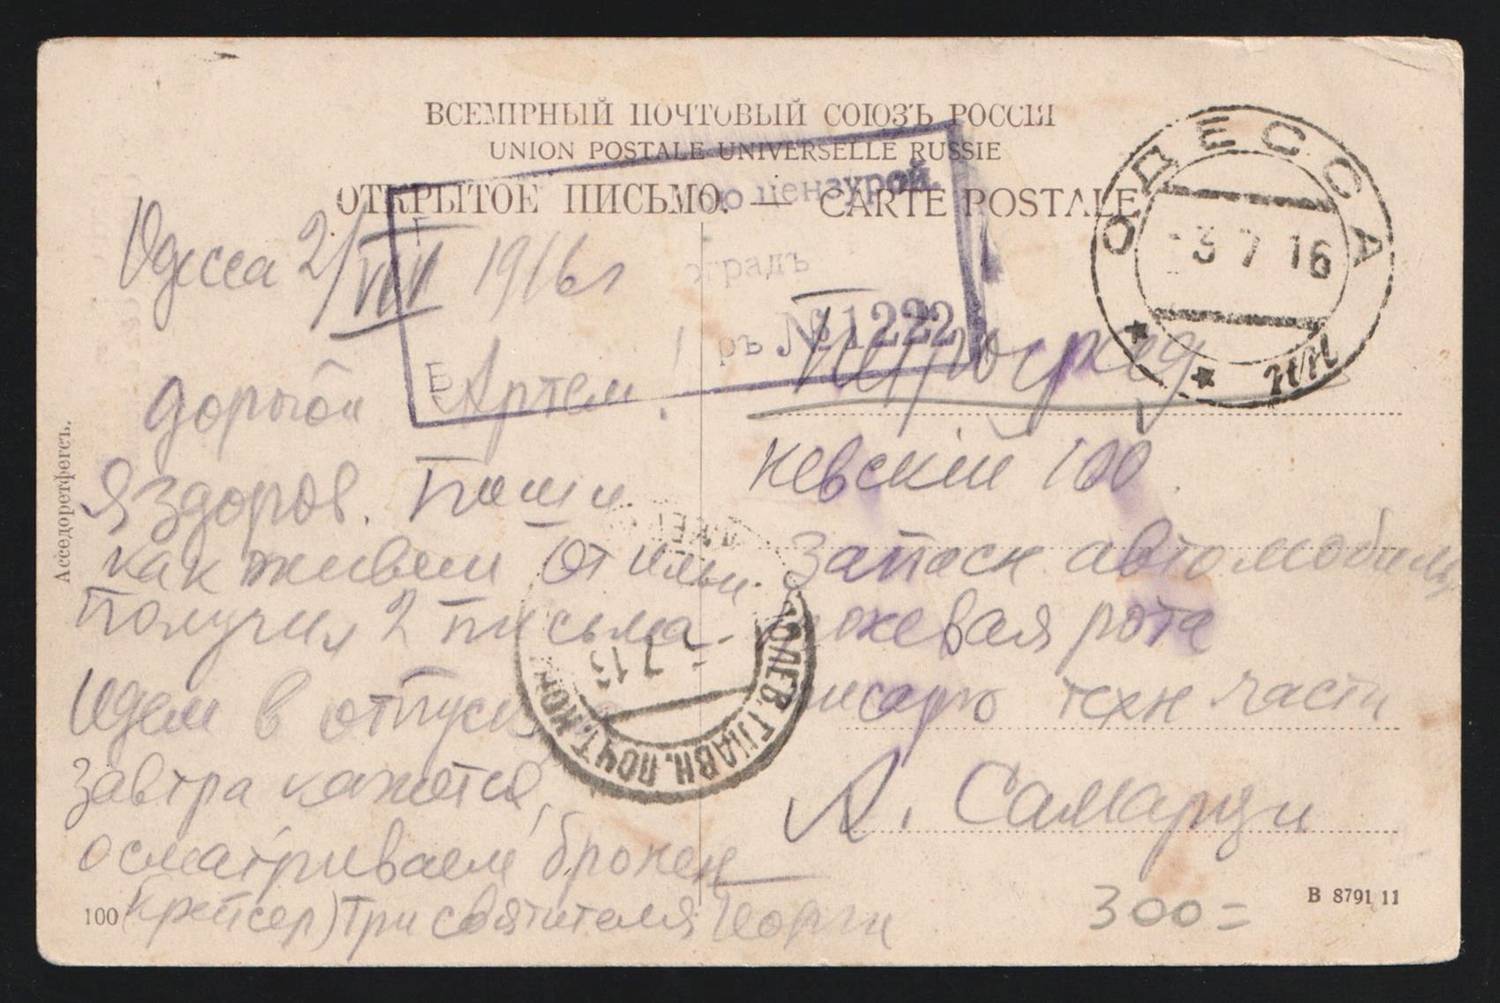 ВСЕМІРНЫЙ ПОЧТОВЫЙ СОЮЗЪ РОССІЯ
UNION POSTALE UNIVERSELLE RUSSIE
ОТКРЫТОЕ ПИСЬМО. — CARTE POSTALE
ю цензурой
оградъ
ръ № 1222
ОДЕССА
3 7 16
Одесса 2/VII 1916 г
Дорогой Артем!
Я здоров. Пиши
как живеш От
Получил 2 письма
Идем в отпуск
Завтра кажется,
осматриваем бронен
(крейсер) Три святителя
Петроград
Невскій 100
Запасн автомобильн
рота
писарю техн части
А. Самарци
ПОЛЕВ. ГЛАВН. ПОЧТ. КОН
7 16
Асседоретфегсъ.
100
В 8791 11
300=